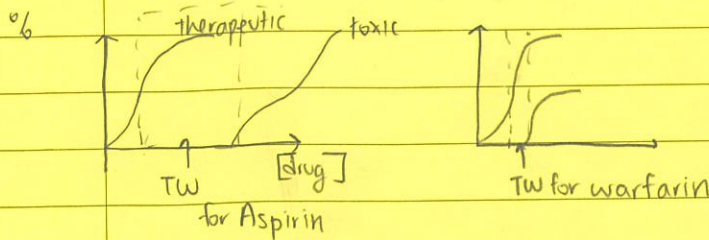 %
therapeutic
toxic
[drug]
TW
for Aspirin
TW for warfarin